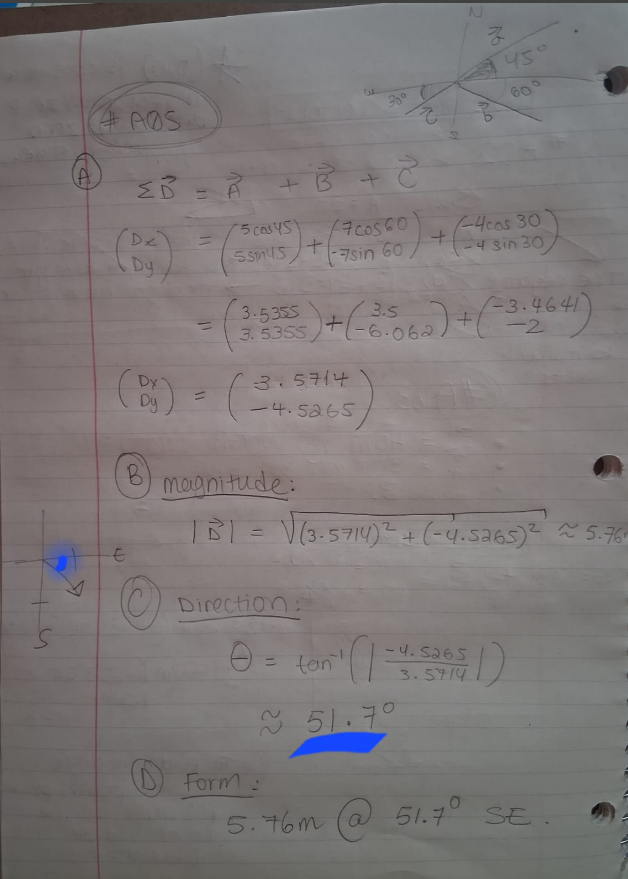 N
a⃗ 45°
W 30° 60°
c⃗ b⃗
S
# A05
(A) ΣD⃗ = A⃗ + B⃗ + C⃗
(Dx Dy) = (5cos45 5sin45) + (7cos60 -7sin60) + (-4cos30 -4sin30)
= (3.5355 3.5355) + (3.5 -6.062) + (-3.4641 -2)
(Dx Dy) = (3.5714 -4.5265)
(B) magnitude:
|D⃗| = √(3.5714)² + (-4.5265)² ≈ 5.76
E
S
(C) Direction:
θ = tan⁻¹(|-4.5265/3.5714|)
≈ 51.7°
(D) Form:
5.76m @ 51.7° SE.